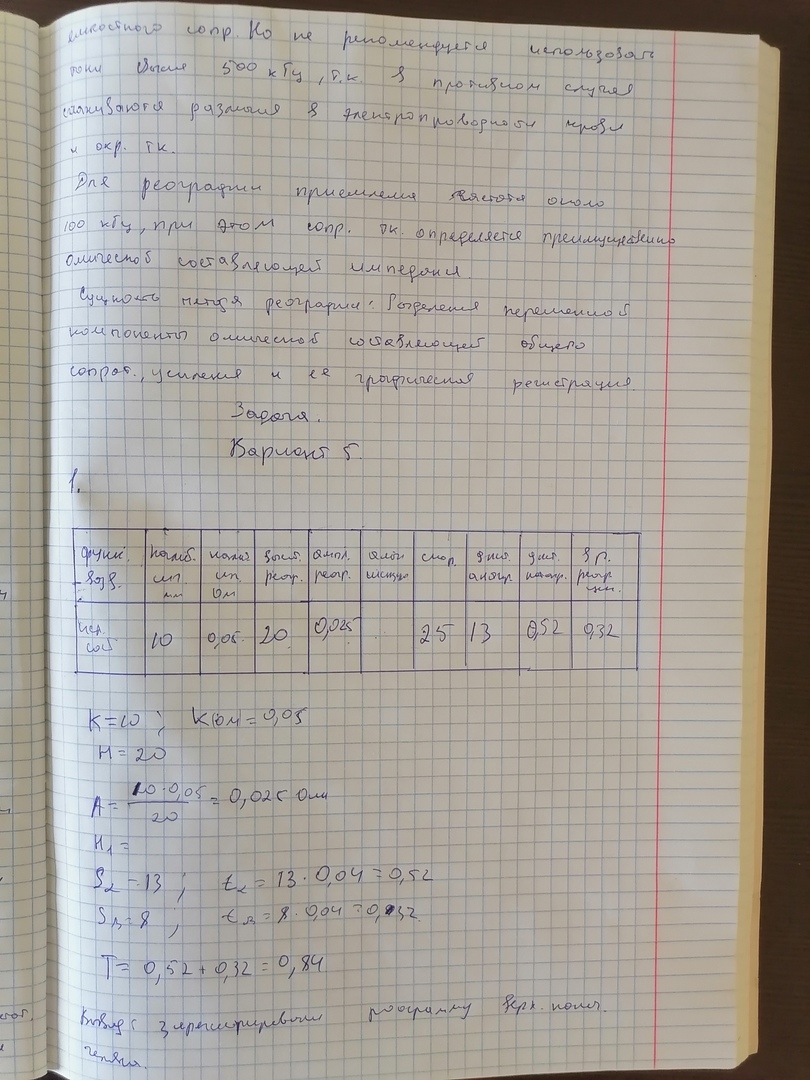 емкостного сопр. Но не рекомендуется использовать
токи выше 500 кГц, т.к. в противном случае
сглаживаются различия в электропроводности крови
и окр. тк.
Для реографии приемлема частота около
100 кГц, при этом сопр. тк. определяется преимуществено
омической составляющей импеданса.
Сущность метода реографии: Разделения переменной
компоненты омической составляющей общего
сопрот., усиления и её графическая регистрация.
Задача.
Вариант 5.
1.
функ. возв. | калиб. ип. мм | калиб ип. Ом | выс. реогр. | ампл. реогр. | скор. | длит. анакр. | длит. катакр. | вр. реогр цик.
исх. сост | 10 | 0,05 | 20 | 0,025 | 25 | 13 | 0,52 | 0,32
К=10 ; К(ом)=0,05
H=20
A= 10·0,05/20 = 0,025 Ом
H1 =
Sα=13 ; tα = 13·0,04=0,52
Sβ=8 ; tβ = 8·0,04=0,32
T= 0,52+0,32=0,84
Вывод: зарегистрировали реограмму верх. конеч.
человека.